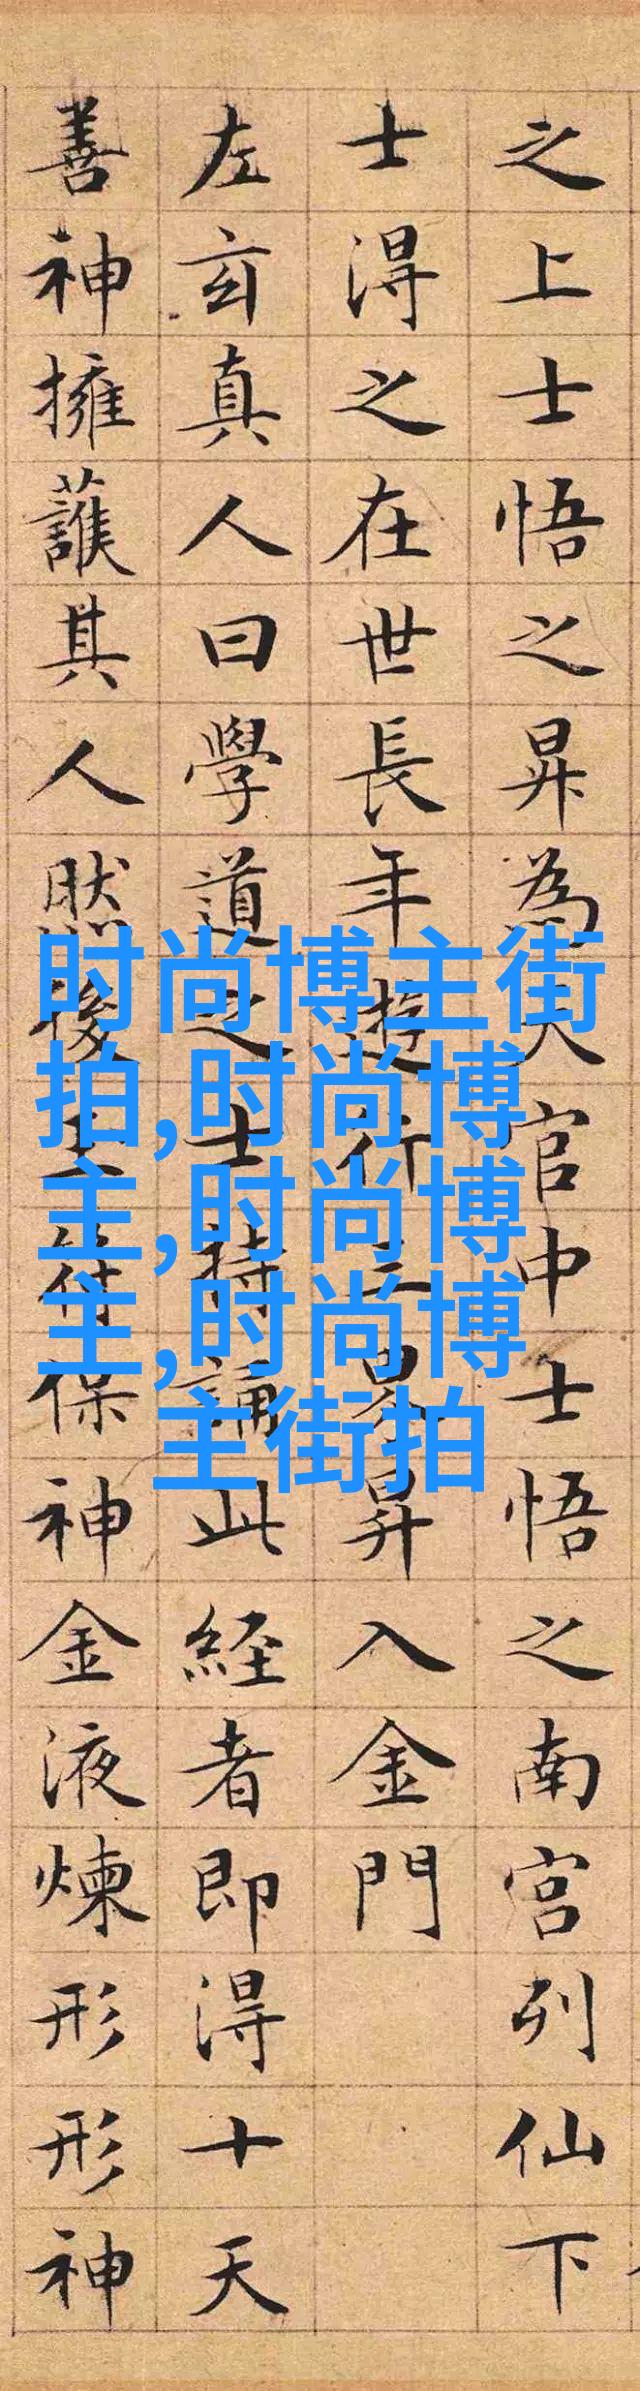 之上士悟之昇為天官中士悟之南宮列仙下
士得之在世長年遊行三界昇入金門
左玄真人曰學道之士持誦此經者即得十天
善神擁護其人然後玉符保神金液煉形形神
时尚博主街
拍,时尚博
主,时尚博
主,时尚博
主街拍